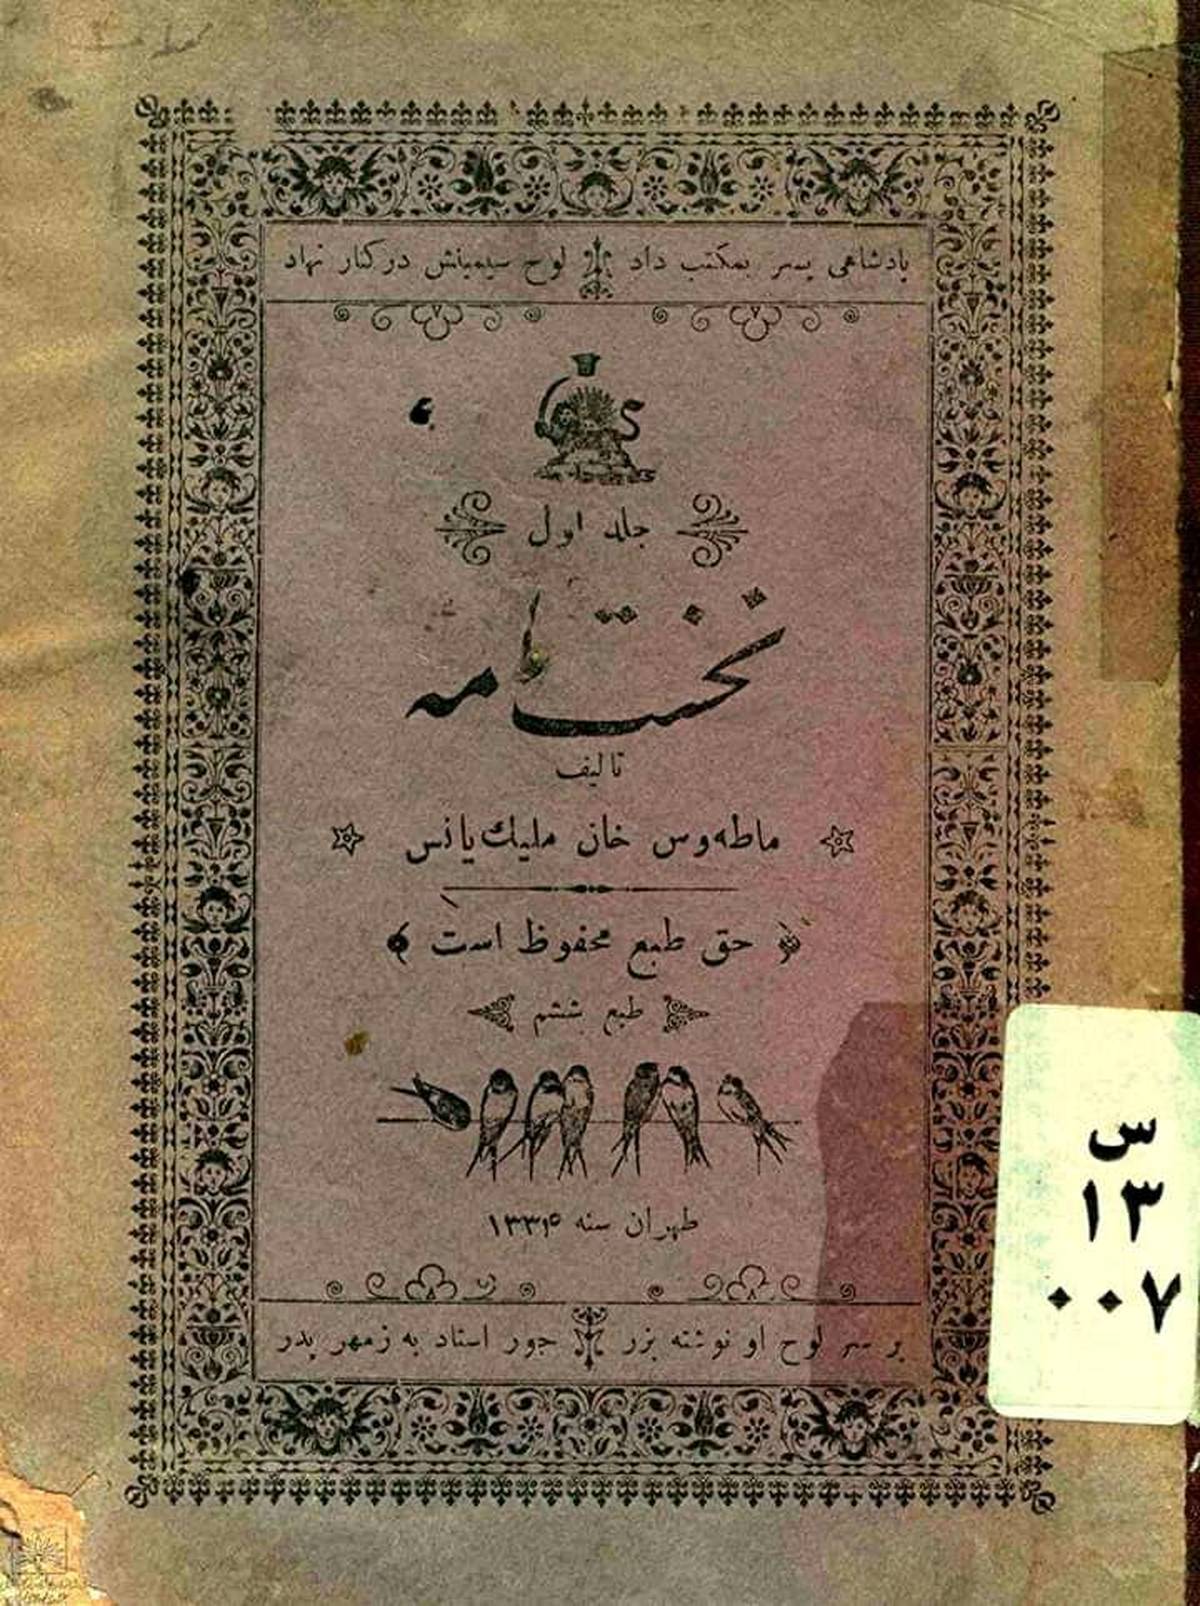 پادشاهی پسر بمکتب داد لوح سیمینش در کنار نهاد
جلد اول
نخستنامه
تالیف
ماطه‌وس خان ملیك‌یانس
حق طبع محفوظ است
طبع ششم
طهران سنه ۱۳۳۴
بر سر لوح او نوشته بزر جور استاد به ز مهر پدر
س
۱۳
۰۰۷